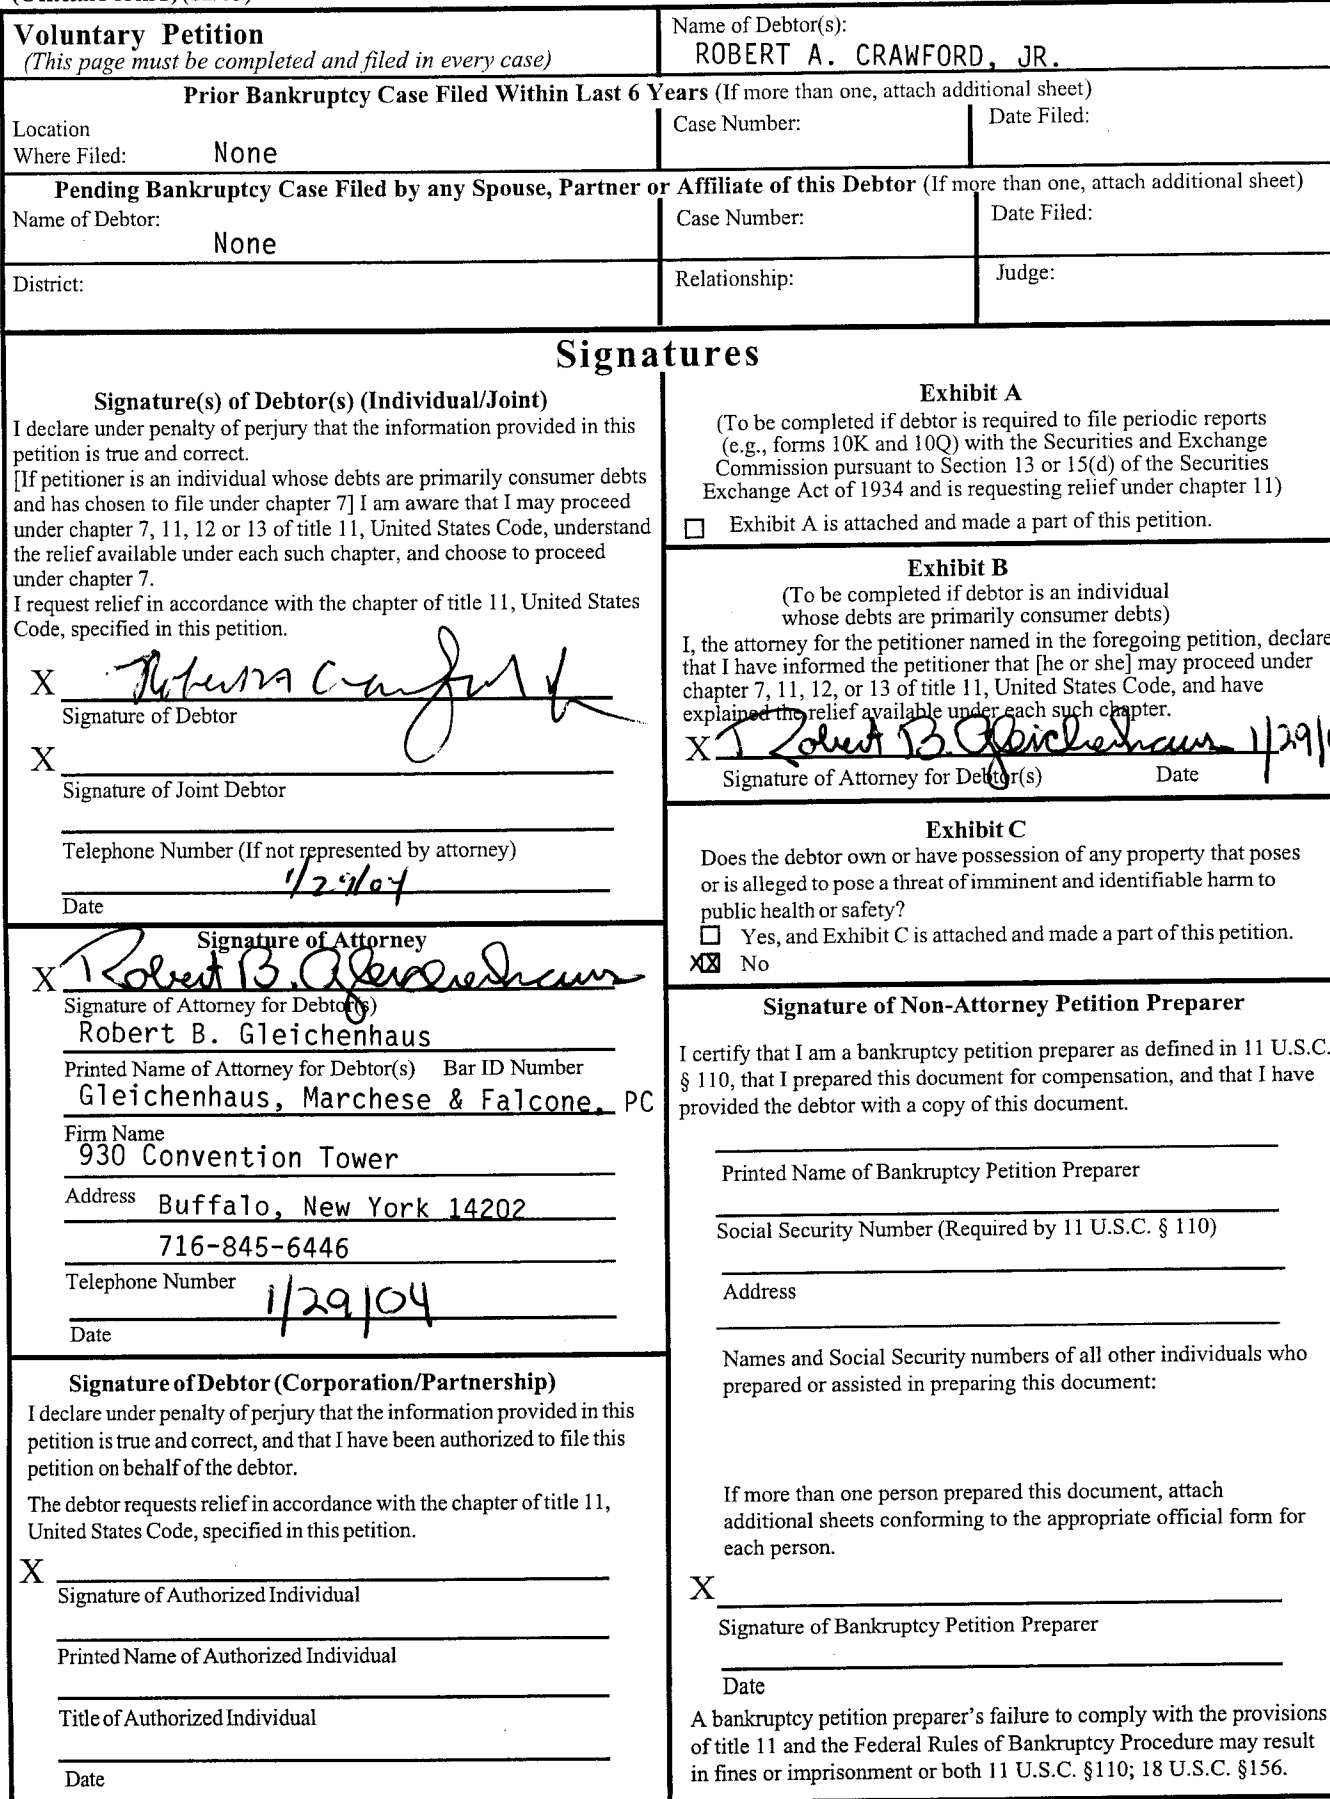 Voluntary Petition
(This page must be completed and filed in every case)
Name of Debtor(s):
ROBERT A. CRAWFORD, JR.
Prior Bankruptcy Case Filed Within Last 6 Years (If more than one, attach additional sheet)
Location
Where Filed: None
Case Number:
Date Filed:
Pending Bankruptcy Case Filed by any Spouse, Partner or Affiliate of this Debtor (If more than one, attach additional sheet)
Name of Debtor:
None
Case Number:
Date Filed:
District:
Relationship:
Judge:
Signatures
Signature(s) of Debtor(s) (Individual/Joint)
I declare under penalty of perjury that the information provided in this
petition is true and correct.
[If petitioner is an individual whose debts are primarily consumer debts
and has chosen to file under chapter 7] I am aware that I may proceed
under chapter 7, 11, 12 or 13 of title 11, United States Code, understand
the relief available under each such chapter, and choose to proceed
under chapter 7.
I request relief in accordance with the chapter of title 11, United States
Code, specified in this petition.
X Robert A Crawford Jr
Signature of Debtor
X
Signature of Joint Debtor
Telephone Number (If not represented by attorney)
1/29/04
Date
Signature of Attorney
X Robert B. Gleichenhaus
Signature of Attorney for Debtor(s)
Robert B. Gleichenhaus
Printed Name of Attorney for Debtor(s) Bar ID Number
Gleichenhaus, Marchese & Falcone, PC
Firm Name
930 Convention Tower
Address Buffalo, New York 14202
716-845-6446
Telephone Number
1/29/04
Date
Signature of Debtor (Corporation/Partnership)
I declare under penalty of perjury that the information provided in this
petition is true and correct, and that I have been authorized to file this
petition on behalf of the debtor.
The debtor requests relief in accordance with the chapter of title 11,
United States Code, specified in this petition.
X
Signature of Authorized Individual
Printed Name of Authorized Individual
Title of Authorized Individual
Date
Exhibit A
(To be completed if debtor is required to file periodic reports
(e.g., forms 10K and 10Q) with the Securities and Exchange
Commission pursuant to Section 13 or 15(d) of the Securities
Exchange Act of 1934 and is requesting relief under chapter 11)
Exhibit A is attached and made a part of this petition.
Exhibit B
(To be completed if debtor is an individual
whose debts are primarily consumer debts)
I, the attorney for the petitioner named in the foregoing petition, declare
that I have informed the petitioner that [he or she] may proceed under
chapter 7, 11, 12, or 13 of title 11, United States Code, and have
explained the relief available under each such chapter.
X Robert B. Gleichenhaus 1/29/
Signature of Attorney for Debtor(s) Date
Exhibit C
Does the debtor own or have possession of any property that poses
or is alleged to pose a threat of imminent and identifiable harm to
public health or safety?
Yes, and Exhibit C is attached and made a part of this petition.
XX No
Signature of Non-Attorney Petition Preparer
I certify that I am a bankruptcy petition preparer as defined in 11 U.S.C.
§ 110, that I prepared this document for compensation, and that I have
provided the debtor with a copy of this document.
Printed Name of Bankruptcy Petition Preparer
Social Security Number (Required by 11 U.S.C. § 110)
Address
Names and Social Security numbers of all other individuals who
prepared or assisted in preparing this document:
If more than one person prepared this document, attach
additional sheets conforming to the appropriate official form for
each person.
X
Signature of Bankruptcy Petition Preparer
Date
A bankruptcy petition preparer's failure to comply with the provisions
of title 11 and the Federal Rules of Bankruptcy Procedure may result
in fines or imprisonment or both 11 U.S.C. §110; 18 U.S.C. §156.